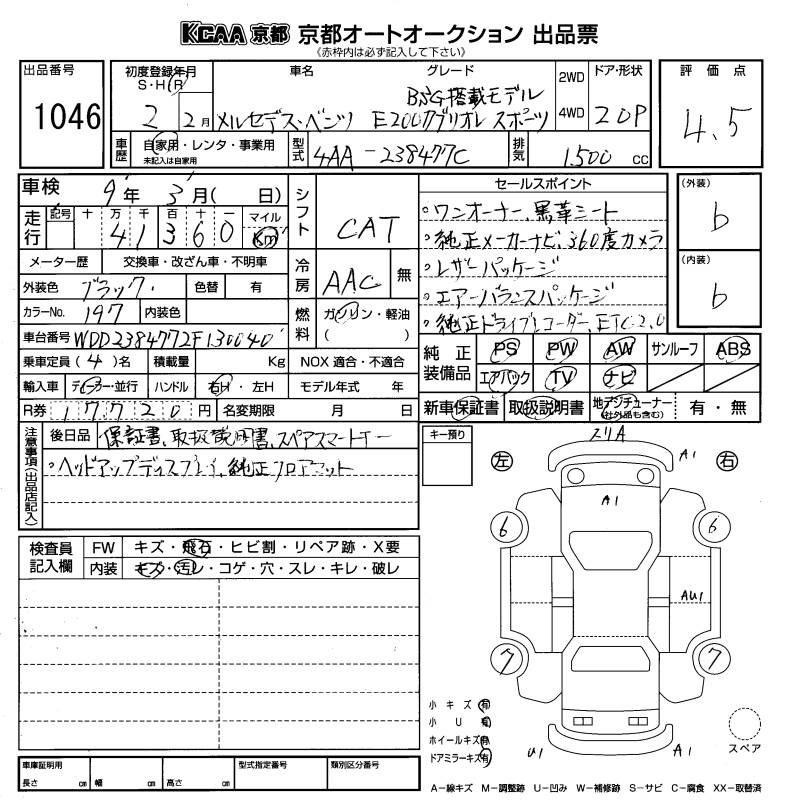 KCAA 京都 京都オートオークション 出品票
《赤枠内は必ず記入して下さい》
出品番号
1046
初度登録年月
S・H・R
2 2月
車名
メルセデス・ベンツ
グレード
BSG搭載モデル
E200カブリオレ スポーツ
2WD
4WD
ドア・形状
2DP
評価点
4.5
車歴
自家用・レンタ・事業用
未記入は自家用
型式
4AA-238477C
排気
1500 CC
車検
9年 3月( 日)
走行
記号 十 万 千 百 十 一 マイル
41360 Km
シフト
CAT
メーター歴 交換車・改ざん車・不明車
外装色 ブラック 色替 有
カラーNo. 197 内装色
冷房
AAC 無
燃料
ガソリン・軽油
( )
車台番号 WDD2384772F130040
乗車定員(4)名 積載量 Kg NOX 適合・不適合
輸入車 ディーラー・並行 ハンドル 右H・左H モデル年式 年
R券 17720円 名変期限 月 日
セールスポイント
○ワンオーナー、黒革シート
○純正メーカーナビ、360度カメラ
○レザーパッケージ
○エアーバランスパッケージ
○純正ドライブレコーダー、ETC2.0
(外装)
b
(内装)
b
純正装備品
PS PW AW サンルーフ ABS
エアバック TV ナビ
新車保証書 取扱説明書 地デジチューナー(社外品も含む) 有・無
注意事項(出品店記入)
後日品 保証書、取扱説明書、スペアスマートキー
○ヘッドアップディスプレイ、純正フロアマット
キー預り
検査員記入欄
FW キズ・飛石・ヒビ割・リペア跡・X要
内装 キズ・汚レ・コゲ・穴・スレ・キレ・破レ
スリA
左 A1 右
A1
6 6
AU1
7 7
U1 A1
小キズ 有
小U 有
ホイールキズ 有
ドアミラーキズ 有
スペア
車庫証明用
長さ cm 幅 cm 高さ cm
型式指定番号
類別区分番号
A-線キズ M-調整跡 U-凹み W-補修跡 S-サビ C-腐食 XX-取替済